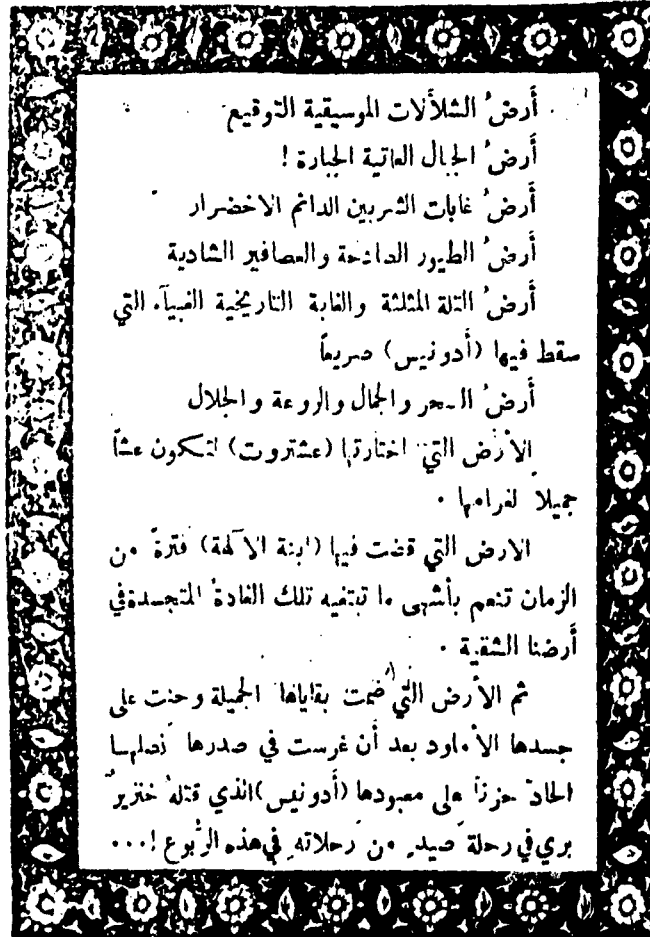 أرضُ الشلالات الموسيقية التوقيع
أرضُ الجبال العاتية الجبارة !
أرضُ غابات الشربين الدائم الاخضرار
أرضُ الطيور الصادحة والعصافير الشادية
أرضُ التلة المثلثة والغابة التاريخية الغبيآء التي
سقط فيها (أدونيس) صريعاً
أرضُ السحر والجمال والروعة والجلال
الأرض التي اختارتها (عشتروت) لتكون عشاً
جميلاً لغرامها .
الارض التي قضت فيها (ابنة الآلهة) فترةً من
الزمان تنعم بأشهى ما تبتغيه تلك الغادةُ المتجسدة في
أرضنا الشقية .
ثم الأرض التي ضمت بقاياها الجميلة وحنت على
جسدها الأملود بعد أن غرست في صدرها نصلها
الحادّ حزناً على معبودها (أدونيس) الذي قتلهُ خنزيرٌ
بري في رحلة صيدٍ من رحلاته في هذه الرُّبوع !...